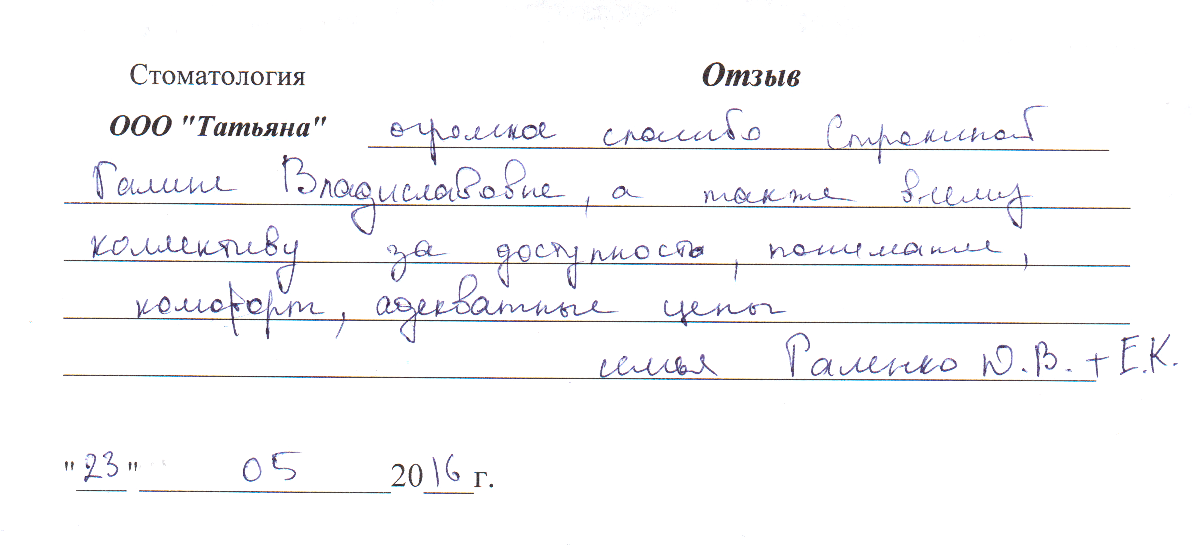 Стоматология
Отзыв
ООО "Татьяна"
огромное спасибо Стракиной
Галине Владиславовне, а также всему
коллективу за доступность, понимание,
комфорт, адекватные цены
семья Галенко Ю.В. + Е.К.
"23" 05 2016 г.